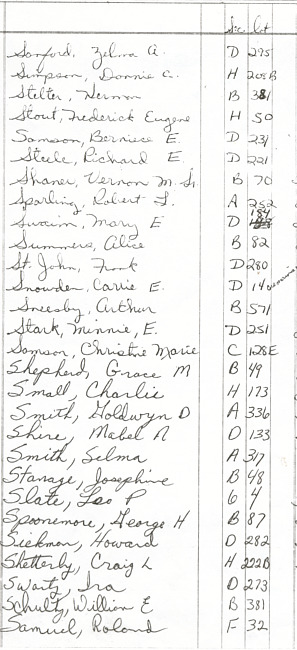 Sec Lot
Sanford, Zelma A. D 295
Simpson, Donnie C. H 208B
Stelter, Herman B 381
Stout, Frederick Eugene H 50
Samson, Berniese E. D 231
Steele, Richard E. D 221
Shaner, Vernon M. Sr. B 70
Sparling, Robert L. A 252
Swaim, Mary E D 184
Summers, Alice B 82
St. John, Frank D 280
Snowden, Carrie E. D 14
Sneesby, Arthur B 571
Stark, Minnie, E. D 251
Samson, Christine Marie C 128E
Shepherd, Grace M B 49
Small, Charlie H 173
Smith, Holdwyn D A 336
Shire, Mabel N D 133
Smith, Selma A 317
Stanage, Josephine B 48
Slate, Leo P 6 4
Spooremore, George H B 87
Siekman, Howard D 282
Shetterby, Craig L H 222D
Swartz, Ira D 273
Schultz, William E B 381
Samuel, Roland F 32